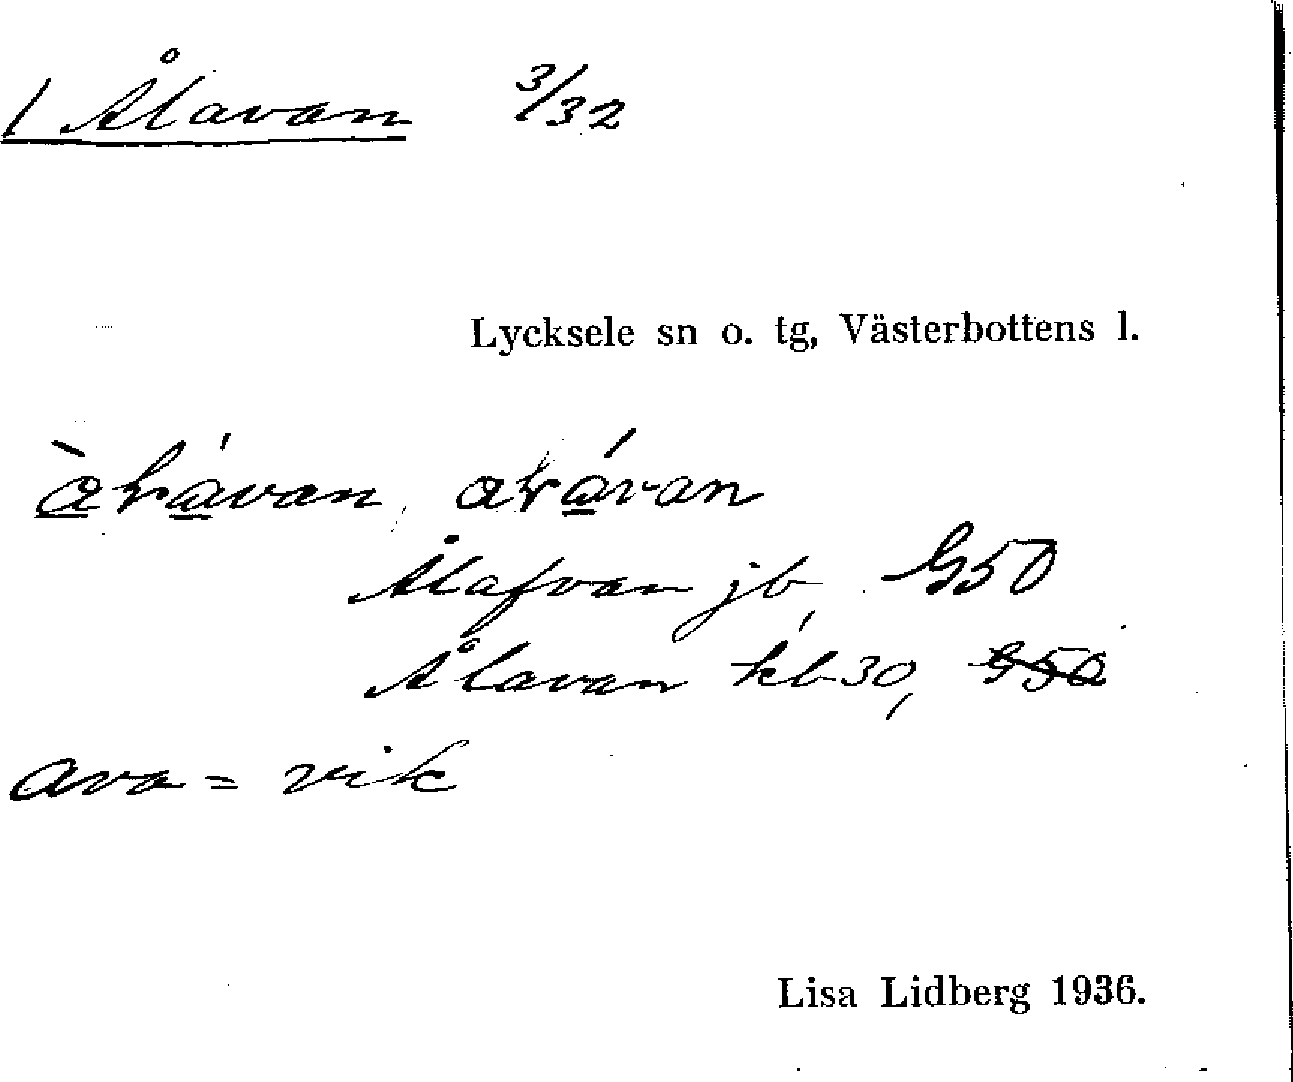 1 Ålavan 3/32
Lycksele sn o. tg, Västerbottens l.
Ålafvan jb, G50
Ålavan kb 30, G50
ava = vik
Lisa Lidberg 1936.